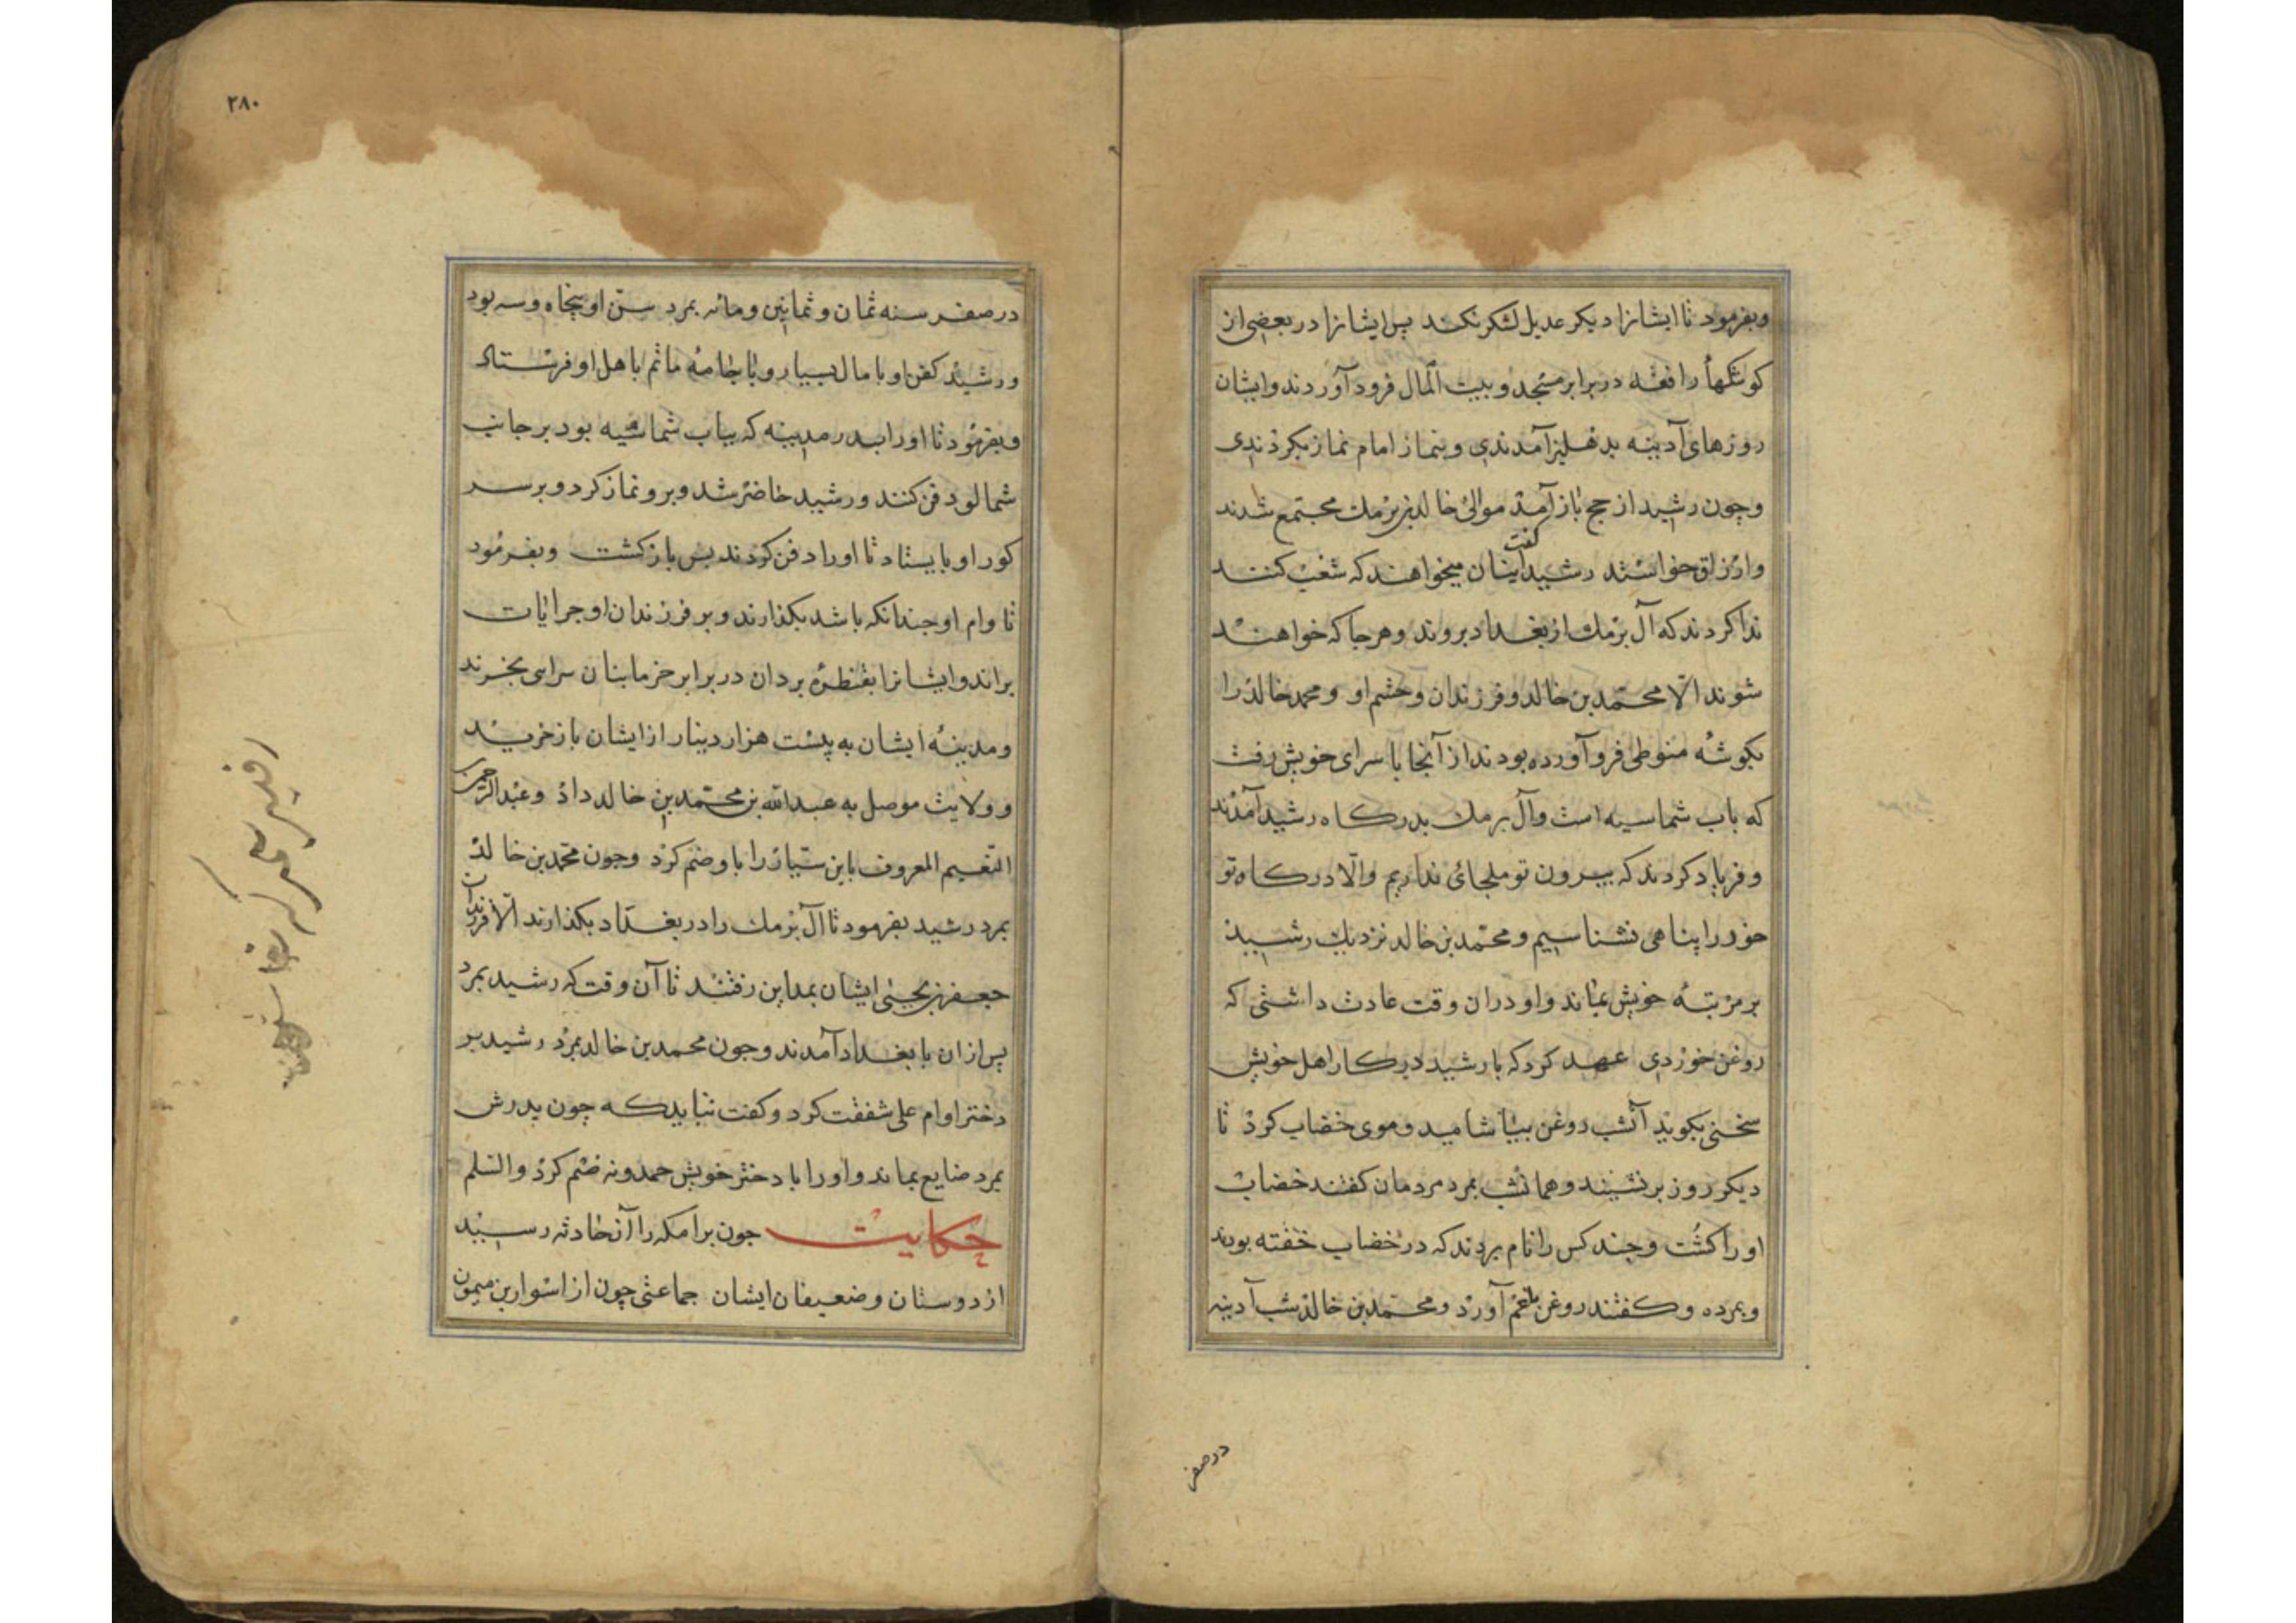 وبفرمود تا ایشانرا دیکر عدیل لشکر نکنند پس ایشانرا در بعضی از
کوشکها رافقه در برابر مسجد و بیت المال فرود آوردند و ایشان
روزهای آدینه بدهلیز آمدندی و بنماز امام نماز بکردندی
وچون رشید از حج باز آمد موالی خالد بن برمك مجتمع شدند
وارزاق خواستند رشید کفت اینان میخواهند که شغب کنند
ندا کردند که آل برمك از بغداد بروند و هر جا که خواهند
شوند الّا محمّد بن خالد و فرزندان و حشم او و محمد خالد را
بکوشه فرو آورده بودند از آنجا با سرای خویش رفت
که باب شماسیه است وآل برمك بدرکاه رشید آمدند
و فریاد کردند که بیرون تو ملجائی نداریم والّا درکاه تو
خود را پناهی نشناسیم و محمّد بن خالد نزدیك رشید
بر مرتبه خویش بماند و او دران وقت عادت داشتی که
روغن خوردی عهد کرد که با رشید در کار اهل خویش
سخنی بکوید آنشب روغن بیاشامید و موی خضاب کرد تا
دیکر روز برنشیند و همانشب بمرد مردمان کفتند خضاب
او را کشت و جند کس را نام بردند که در خضاب خفته بودند
وبمرده و کفتند روغن بلغم آورد و محمّد بن خالد شب آدینه
در صفر
۲۸۰
در صفر سنه ثمان و ثمانین ومائه بمرد سنّ او پنجاه وسه بود
ورشید کفن او با مال بسیار و با جامه ماتم باهل او فرستاد
وبفرمود تا او را بدر مدینه که بباب شماسیه بود بر جانب
شمالود فن کنند و رشید حاضر شد وبرو نماز کرد و بر سر
کور او بایستاد تا او را دفن کردند پس باز کشت وبفرمود
تا وام او جندانکه باشد بکذارند و بر فرزندان او جرایات
براند و ایشانرا بقنطره بردان در برابر سرای بخرند
ومدینه ایشان به بیست هزار دینار از ایشان باز خرید
و ولایت موصل به عبدالله بن محمّد بن خالد داد وعبدالرحمن
المعروف باین را باو ضم کرد وجون محمّد بن خالد
بمرد رشید بفرمود تا آل برمك را در بغداد بکذارند الّا فرزندان
جعفر بن یحیی ایشان بمداین رفتند تا آن وقت که رشید بمرد
پس از ان با بغداد آمدند وجون محمد بن خالد بمرد رشید بر
دختر او ام علی شفقت کرد و کفت نباید که چون پدرش
بمرد ضایع بماند و او را با دختر خویش حمدونه ضم کرد والسلم
حکایت جون برامکه را آن حادثه رسید
از دوستان و ضعیفان ایشان جماعتی چون از اسوار بن میمون